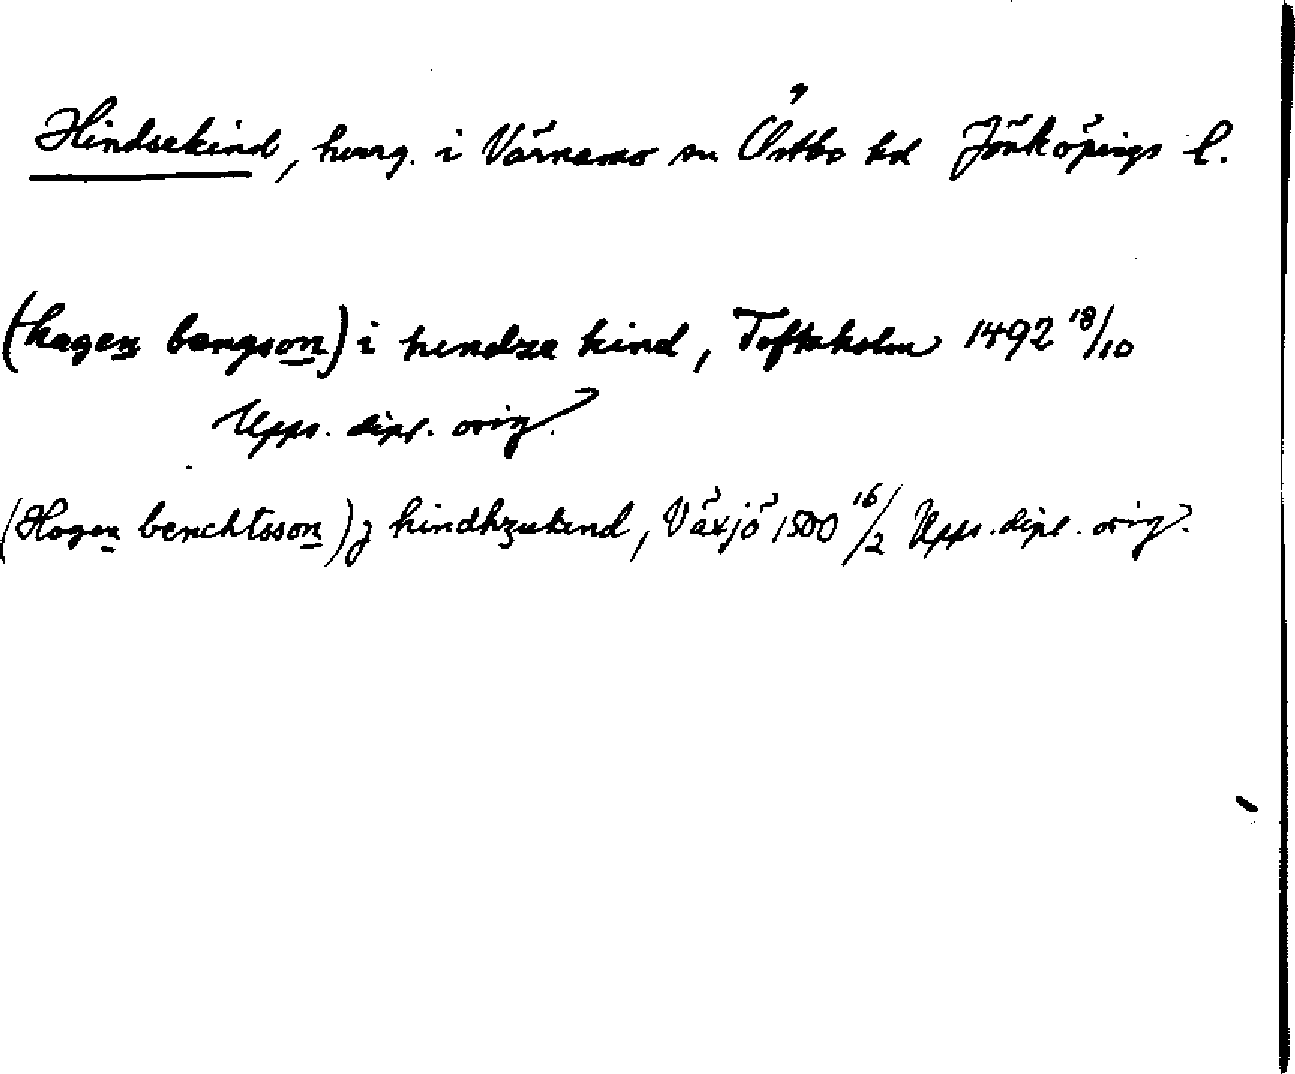 Hindsekind, herrg. i Värnamo sn Östbo hd Jönköpings l.
(hagen bengson) i hendze kind, Toftaholm 1492 18/10
Upps. dipl. orig.
(Hogen benchtsson) j hindhzekind, Växjö 1500 16/2 Upps. dipl. orig.